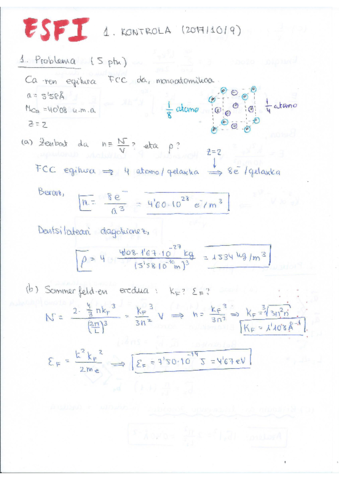 ESFI 1. KONTROLA (2017/10/9)
1. Problema (5 ptu)
Ca-ren egitura FCC da, monoatomikoa
a = 5'58Å
M_Ca = 40'08 u.m.a.
Z = 2
1/8 atomo
1/4 atomo
(a) Zenbat da n = N/V? eta ρ?
Z=2
FCC egitura ⟹ 4 atomo/gelaxka ⟹ 8e⁻/gelaxka
Beraz,
n = 8e⁻/a³ = 4'60·10²⁸ e⁻/m³
Dentsitateari dagokionez,
kg
= 1534 kg/m³
(b) Sommerfeld-en eredua: k_F? ε_F?
N = 2· 4/3 πk_F³ / (2π/L)³ = k_F³/3π² V ⟹ n = k_F³/3π² ⟹ k_F = ∛3π²n
K_F = 1'108 Å⁻¹
ε_F = ħ²k_F²/2m_e ⟹ ε_F = 7'50·10⁻¹⁹ J = 4'67 eV